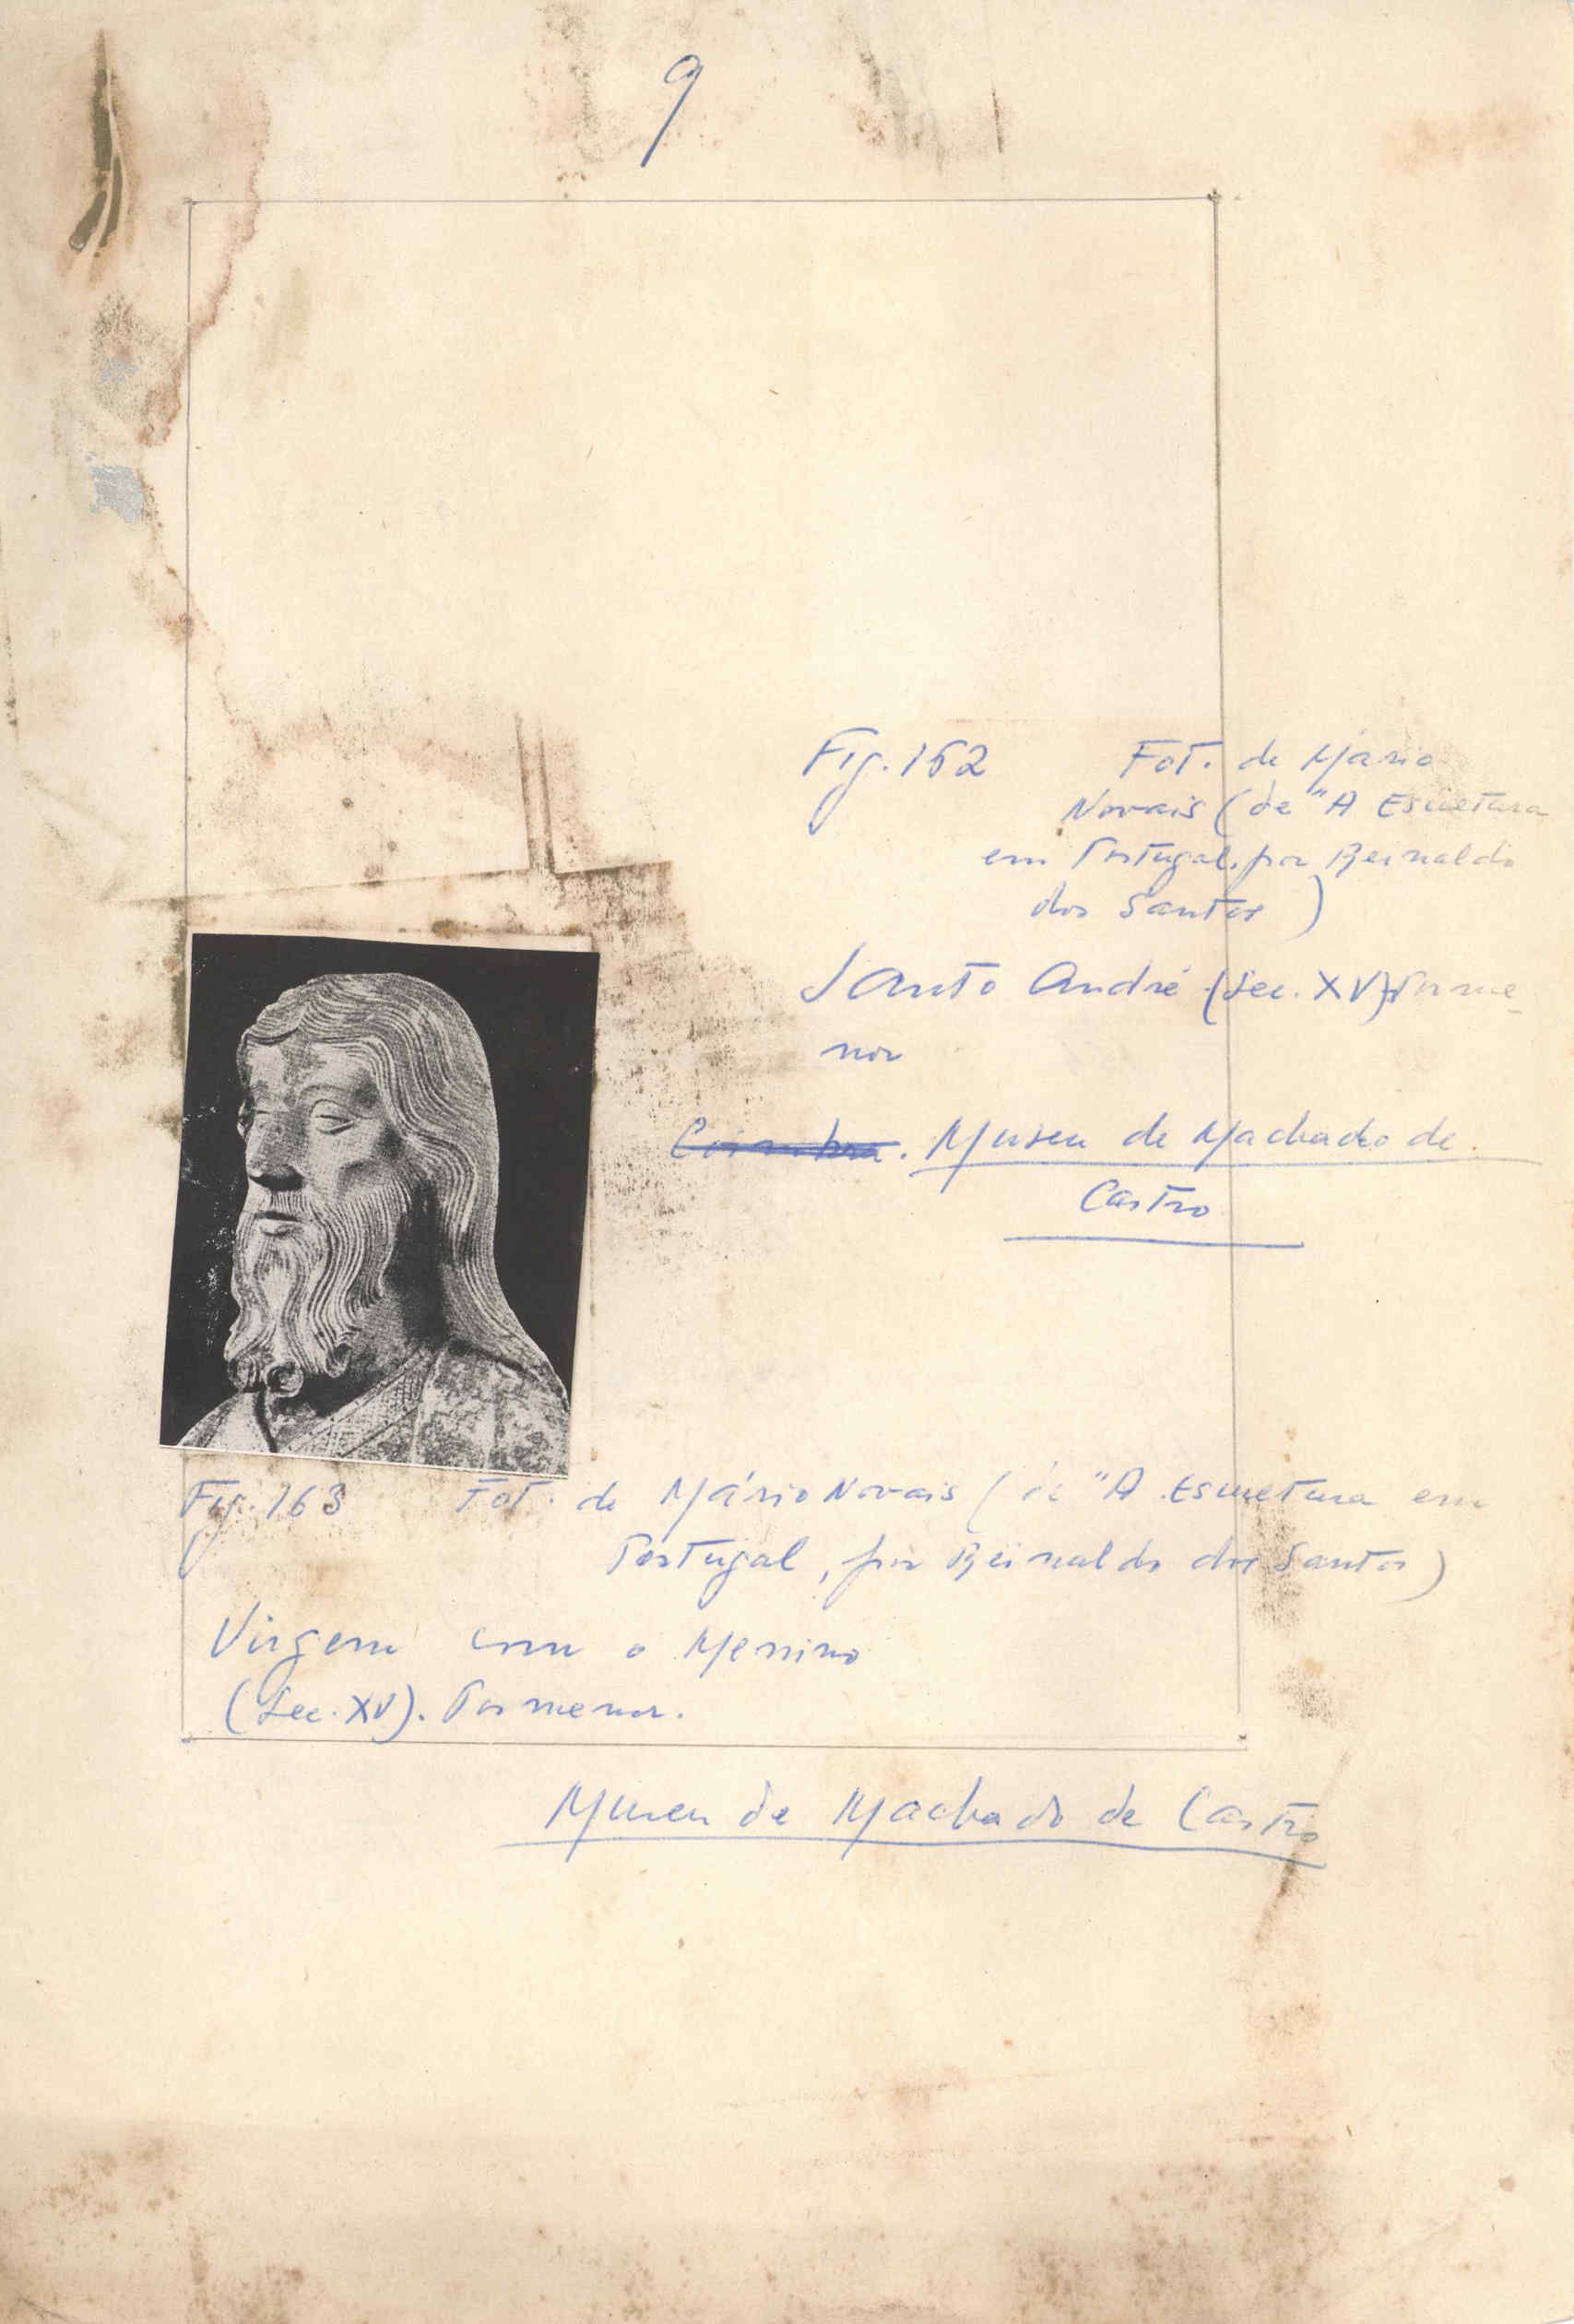 9
Fig. 162 Fot. de Mário
Novais (de "A Escultura
em Portugal, por Reinaldo
dos Santos)
Santo André (Sec. XV) Porme-
nor
Coimbra. Museu de Machado de
Castro
Fig. 163 Fot. de Mário Novais (de "A Escultura em
Portugal, por Reinaldo dos Santos)
Virgem com o Menino
(Sec. XV). Pormenor.
Museu de Machado de Castro